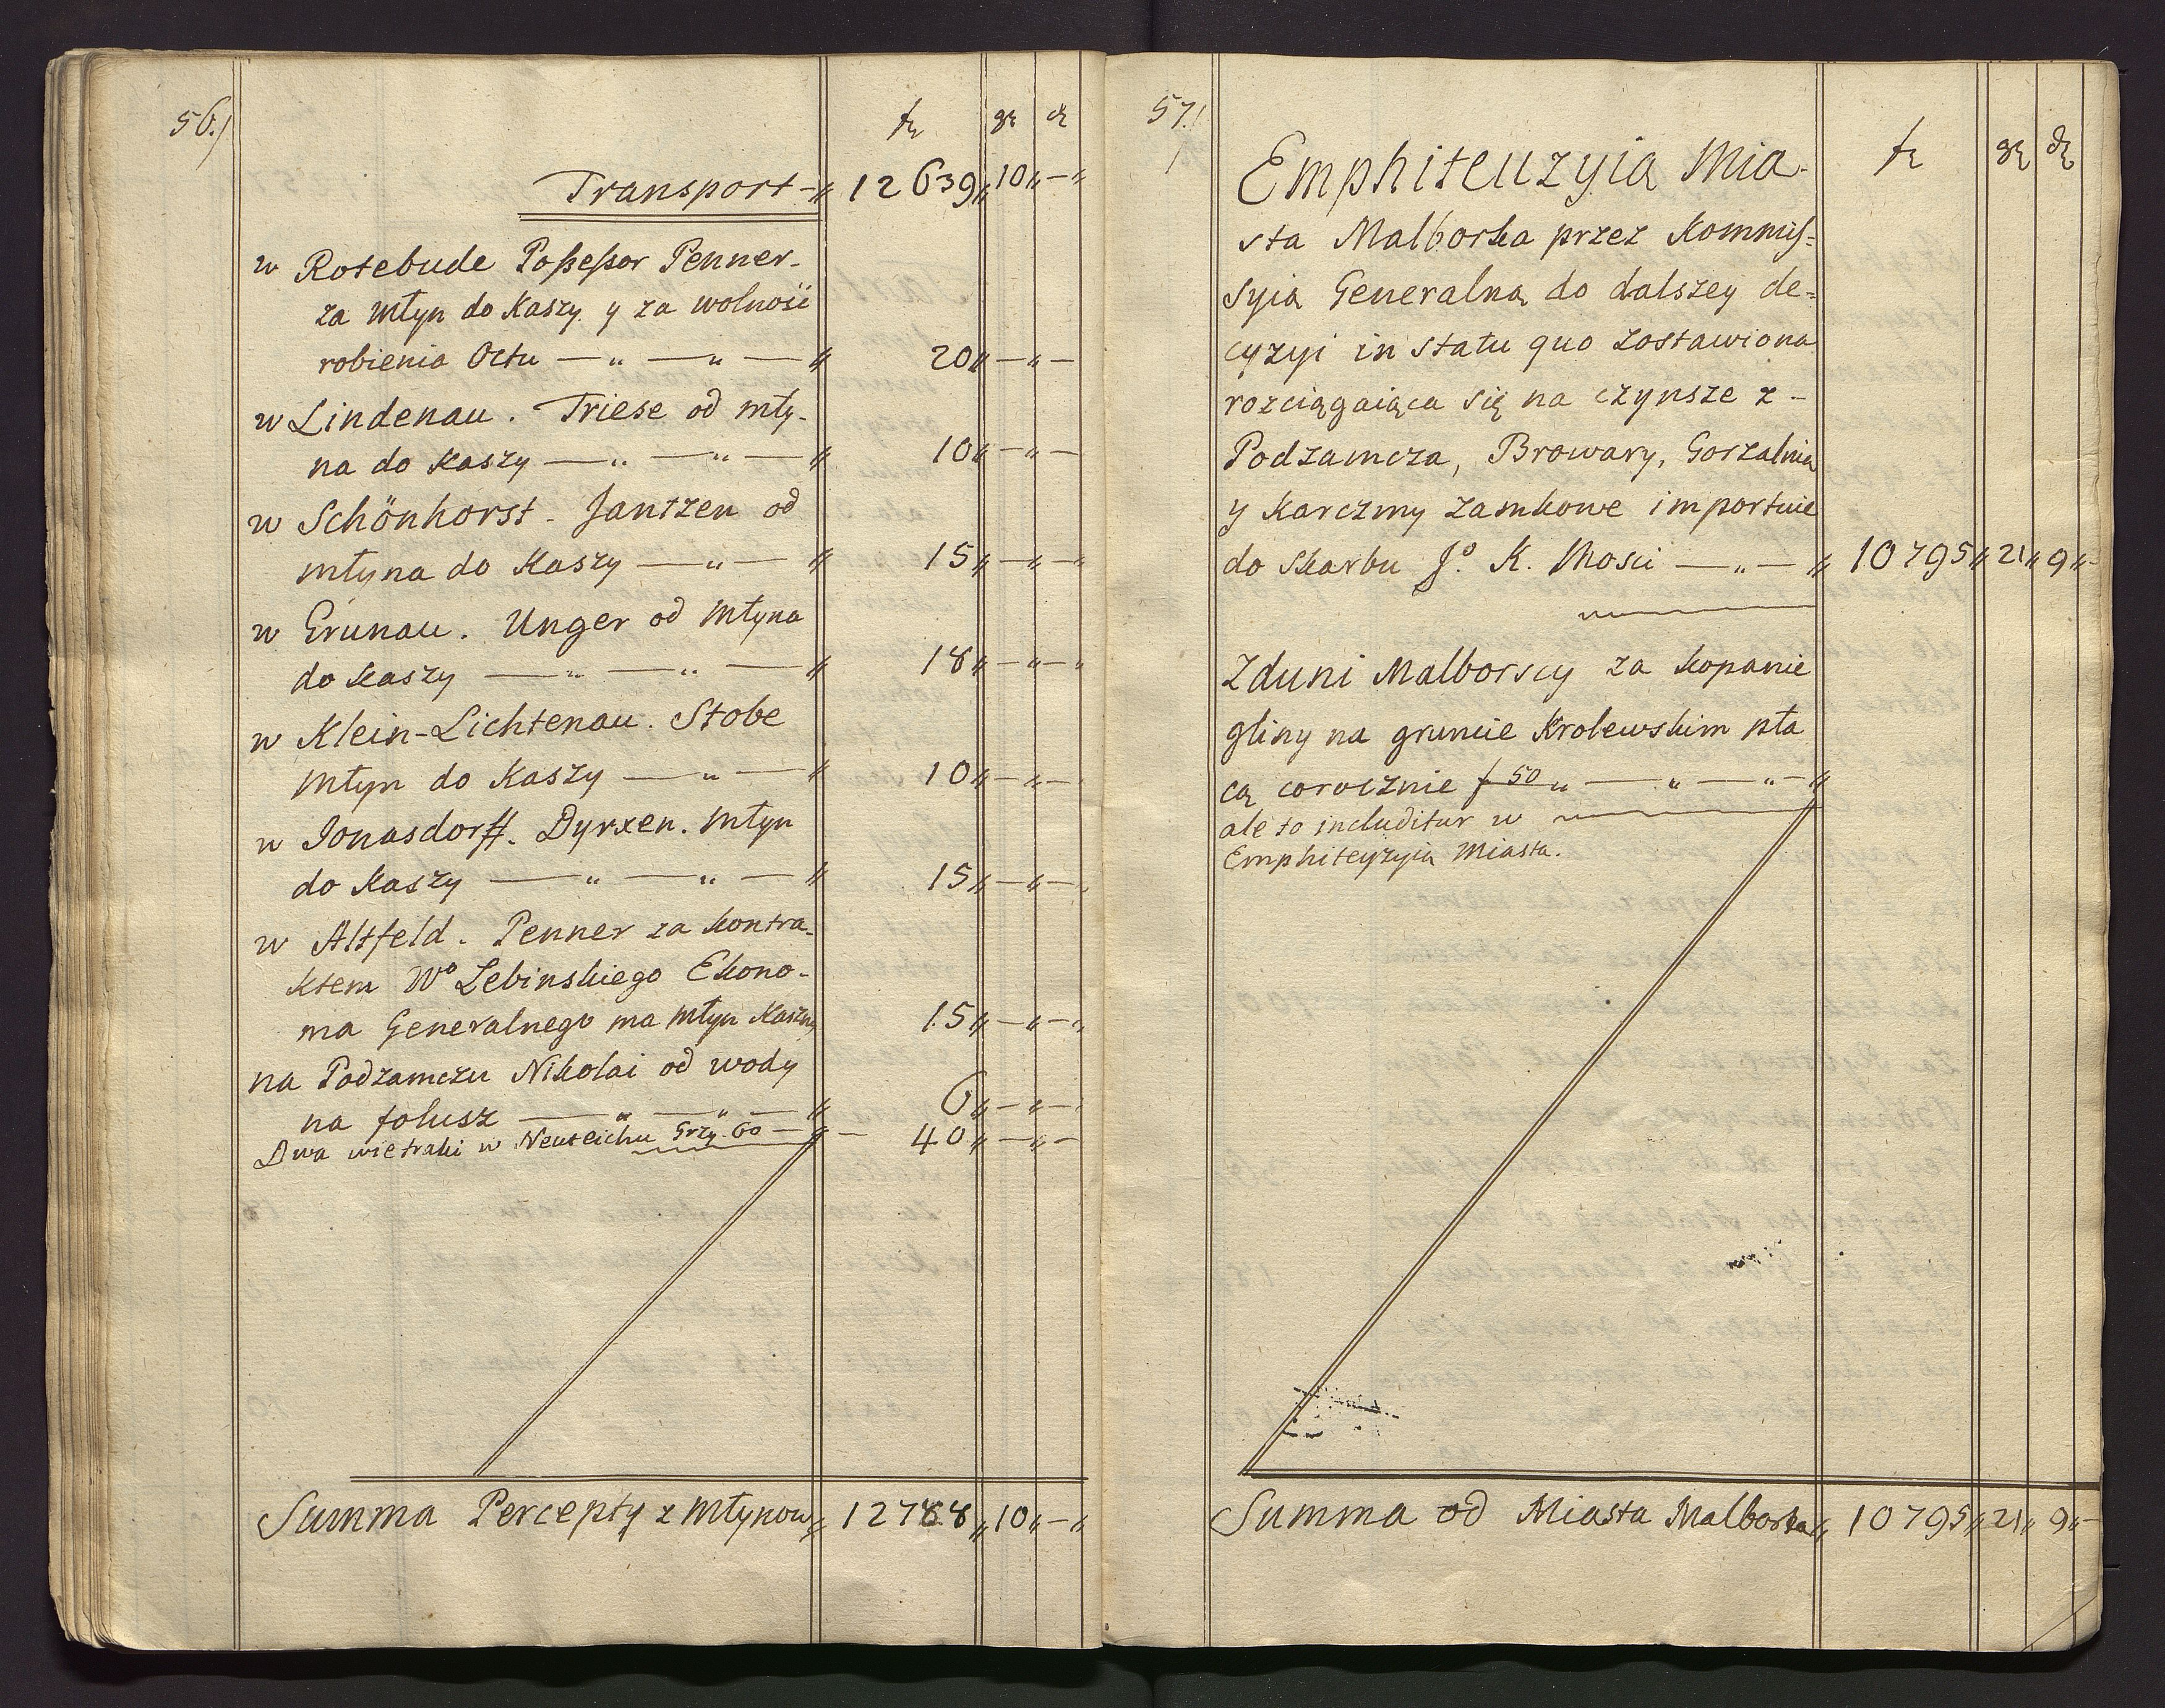 56.)
f gr d
Transport 12639 10 -
w Rotebude Poßeßor Penner-
za młyn do Kaszy y za wolność
robienia Octu — „ — „ — 20 „ — „ —
w Lindenau. Triese od mły-
na do Kaszy — „ — „ — 10 „ — „ —
w Schönhorst - Jantzen od
młyna do Kaszy — „ — 15 „ — „ —
w Grunau. Unger od Młyna
do Kaszy — „ — „ — 18 „ — „ —
w Klein-Lichtenau. Stobe
Młyn do Kaszy — „ — 10 „ — „ —
w Jonasdorff. Dyrxen. Młyn
do Kaszy — „ — „ — 15 „ — „ —
w Altfeld. Penner za kontra-
ktem Wo Lebinskiego Ekono-
ma Generalnego ma Młyn Kaszny 15 „ — „ —
na Podzamczu Nikolai od wody
na folusz — „ — „ — 6 „ — „ —
Dwa wietraki w Neuteichu Grzy. 60 — 40 „ — „ —
Summa Percepty z Młynow 12788 „ 10 „ — „
57.)
f gr d
Emphiteuzyia Mia-
sta Malborka przez Kommis=
syią Generalną do dalszey de=
cyzyi in statu quo zostawiona
rozciągaiąca się na czynsze z -
Podzamcza, Browary, Gorzalnią
y Karczmy Zamkowe importuie
do Skarbu Jo. K. Mosci — „ — 10795 „ 21 „ 9 „
Zduni Malborscy za kopanie
gliny na gruncie Krolewskim pła
cą corocznie f 50 „ — „ — „ —
ale to includitur w
Emphiteyzyią Miasta.
Summa od Miasta Malborka 10795 „ 21 „ 9 „ —